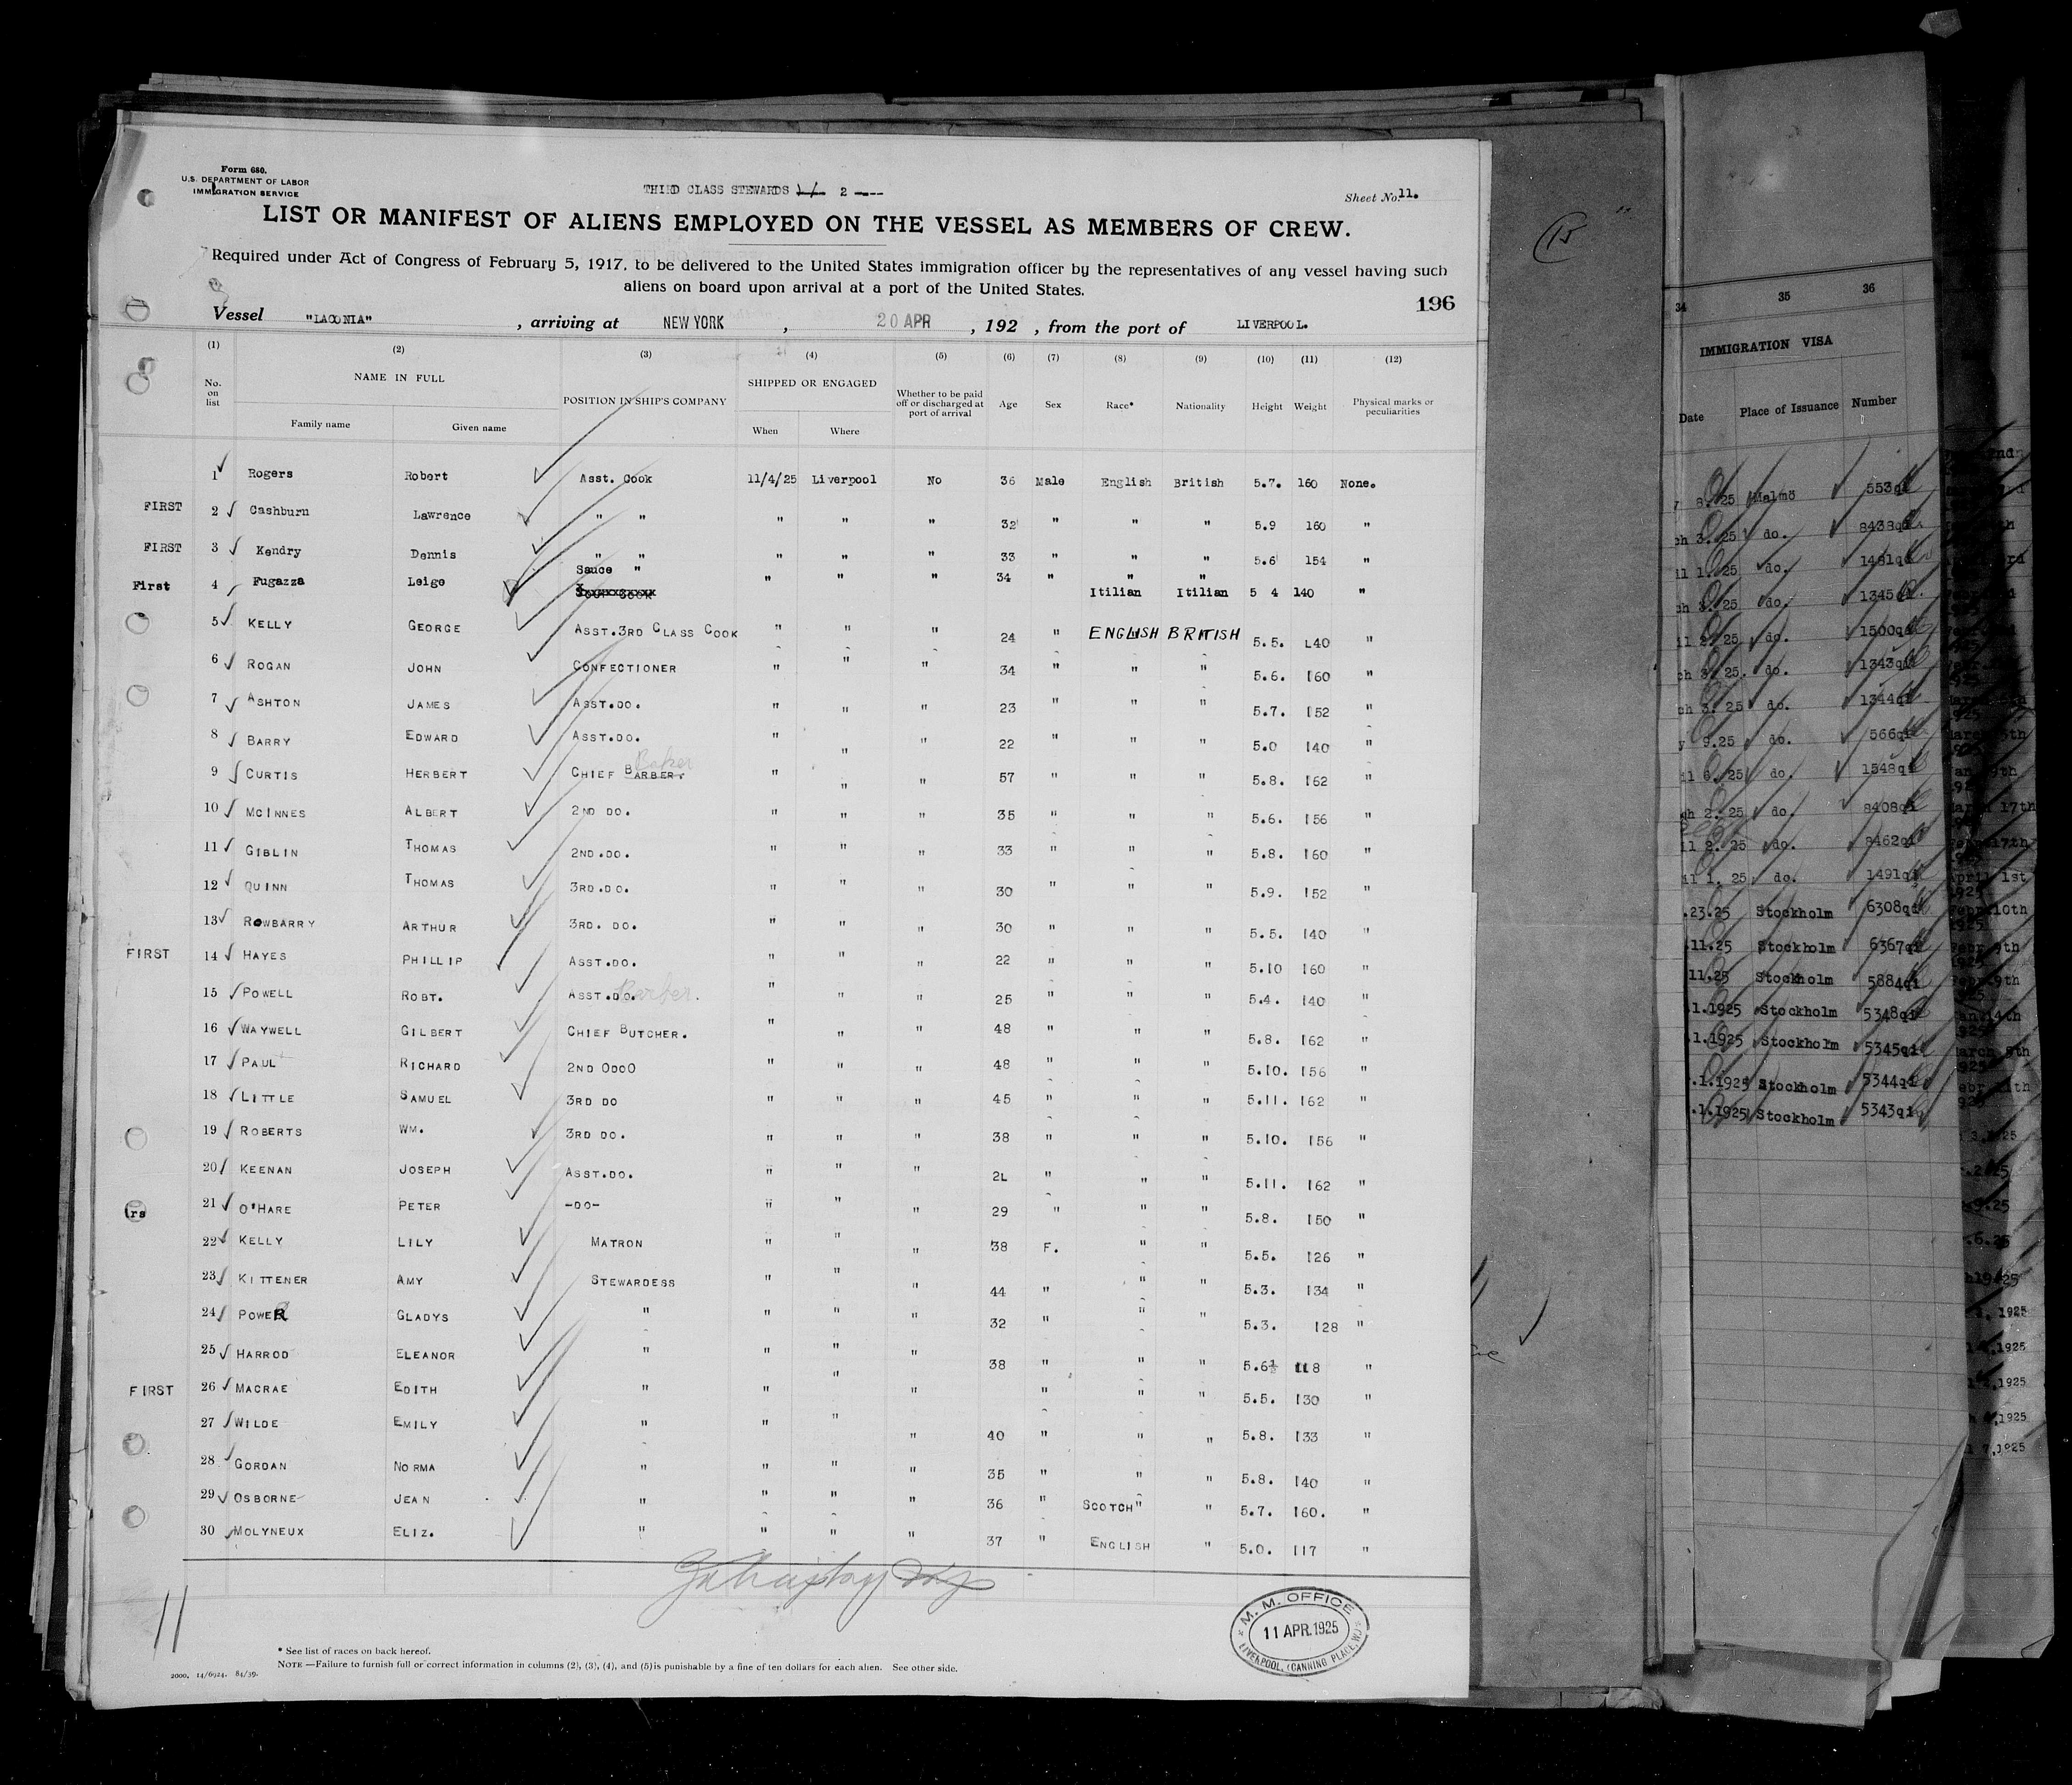 Form 680.
U.S. DEPARTMENT OF LABOR
IMMIGRATION SERVICE
THIRD CLASS STEWARDS 2 ----
Sheet No. 11.
LIST OR MANIFEST OF ALIENS EMPLOYED ON THE VESSEL AS MEMBERS OF CREW.
Required under Act of Congress of February 5, 1917, to be delivered to the United States immigration officer by the representatives of any vessel having such
aliens on board upon arrival at a port of the United States.
196
Vessel "LACONIA" , arriving at NEW YORK , 20 APR , 192 , from the port of LIVERPOOL.
(1) (2) (3) (4) (5) (6) (7) (8) (9) (10) (11) (12)
No. on list NAME IN FULL POSITION IN SHIP'S COMPANY SHIPPED OR ENGAGED Whether to be paid off or discharged at port of arrival Age Sex Race* Nationality Height Weight Physical marks or peculiarities
Family name Given name When Where
1 Rogers Robert Asst. Cook 11/4/25 Liverpool No 36 Male English British 5.7. 160 None.
FIRST 2 Cashburn Lawrence " " " " " 32 " " " 5.9 160 "
FIRST 3 Kendry Dennis " " " " " 33 " " " 5.6 154 "
First 4 Fugazza Leige Sauce " " " " 34 " " " Itilian Itilian 5 4 140 "
5 KELLY GEORGE ASST.3RD CLASS COOK " " " 24 " ENGLISH BRITISH 5.5. 140 "
6 ROGAN JOHN CONFECTIONER " " " 34 " " " 5.6. 160 "
7 ASHTON JAMES ASST.DO. " " " 23 " " " 5.7. 152 "
8 BARRY EDWARD ASST.DO. " " " 22 " " " 5.0 140 "
9 CURTIS HERBERT CHIEF BARBER. Baker " " " 57 " " " 5.8. 162 "
10 MCINNES ALBERT 2ND DO. " " " 35 " " " 5.6. 156 "
11 GIBLIN THOMAS 2ND.DO. " " " 33 " " " 5.8. 160 "
12 QUINN THOMAS 3RD.DO. " " " 30 " " " 5.9. 152 "
13 ROWBARRY ARTHUR 3RD. DO. " " " 30 " " " 5.5. 140 "
FIRST 14 HAYES PHILLIP ASST.DO. " " " 22 " " " 5.10 160 "
15 POWELL ROBT. ASST.DO. Barber. " " " 25 " " " 5.4. 140 "
16 WAYWELL GILBERT CHIEF BUTCHER. " " " 48 " " " 5.8. 162 "
17 PAUL RICHARD 2ND ODOO " " " 48 " " " 5.10. 156 "
18 LITTLE SAMUEL 3RD DO " " " 45 " " " 5.11. 162 "
19 ROBERTS WM. 3RD DO. " " " 38 " " " 5.10. 156 "
20 KEENAN JOSEPH ASST.DO. " " " 2L " " " 5.11. 162 "
21 O'HARE PETER -DO- " " " 29 " " " 5.8. 150 "
22 KELLY LILY MATRON " " " 38 F. " " 5.5. 126 "
23 KITTENER AMY STEWARDESS " " " 44 " " " 5.3. 134 "
24 POWER GLADYS " " " " 32 " " " 5.3. 128 "
25 HARROD ELEANOR " " " " 38 " " " 5.6½ 118 "
FIRST 26 MACRAE EDITH " " " " " " " 5.5. 130 "
27 WILDE EMILY " " " " 40 " " " 5.8. 133 "
28 GORDAN NORMA " " " " 35 " " " 5.8. 140 "
29 OSBORNE JEAN " " " " 36 " SCOTCH" " 5.7. 160. "
30 MOLYNEUX ELIZ. " " " " 37 " ENGLISH " 5.0. 117 "
11
M. M. OFFICE
11 APR. 1925
LIVERPOOL, (CANNING PLACE, W.)
* See list of races on back hereof.
NOTE—Failure to furnish full or correct information in columns (2), (3), (4), and (5) is punishable by a fine of ten dollars for each alien. See other side.
2000, 14/6924. 84/39.
34 35 36
IMMIGRATION VISA
Date Place of Issuance Number
8.25 Malmö 553qi
3.25 do. 8438qi
1.25 do. 1481qi
25 do. 1345qi
25 do. 1500qi
25. do. 1343qi
25 do. 1344qi
9.25 do. 566qi
6.25 do. 1548qi
2.25 do. 8408qi
2.25 do. 8462qi
1.25. do. 1491qi
.23.25 Stockholm 6308qi
11.25 Stockholm 6367qi
11.25 Stockholm 5884qi
.1.1925 Stockholm 5348qi
.1.1925 Stockholm 5345qi
.1.1925 Stockholm 5344qi
.1.1925 Stockholm 5343qi